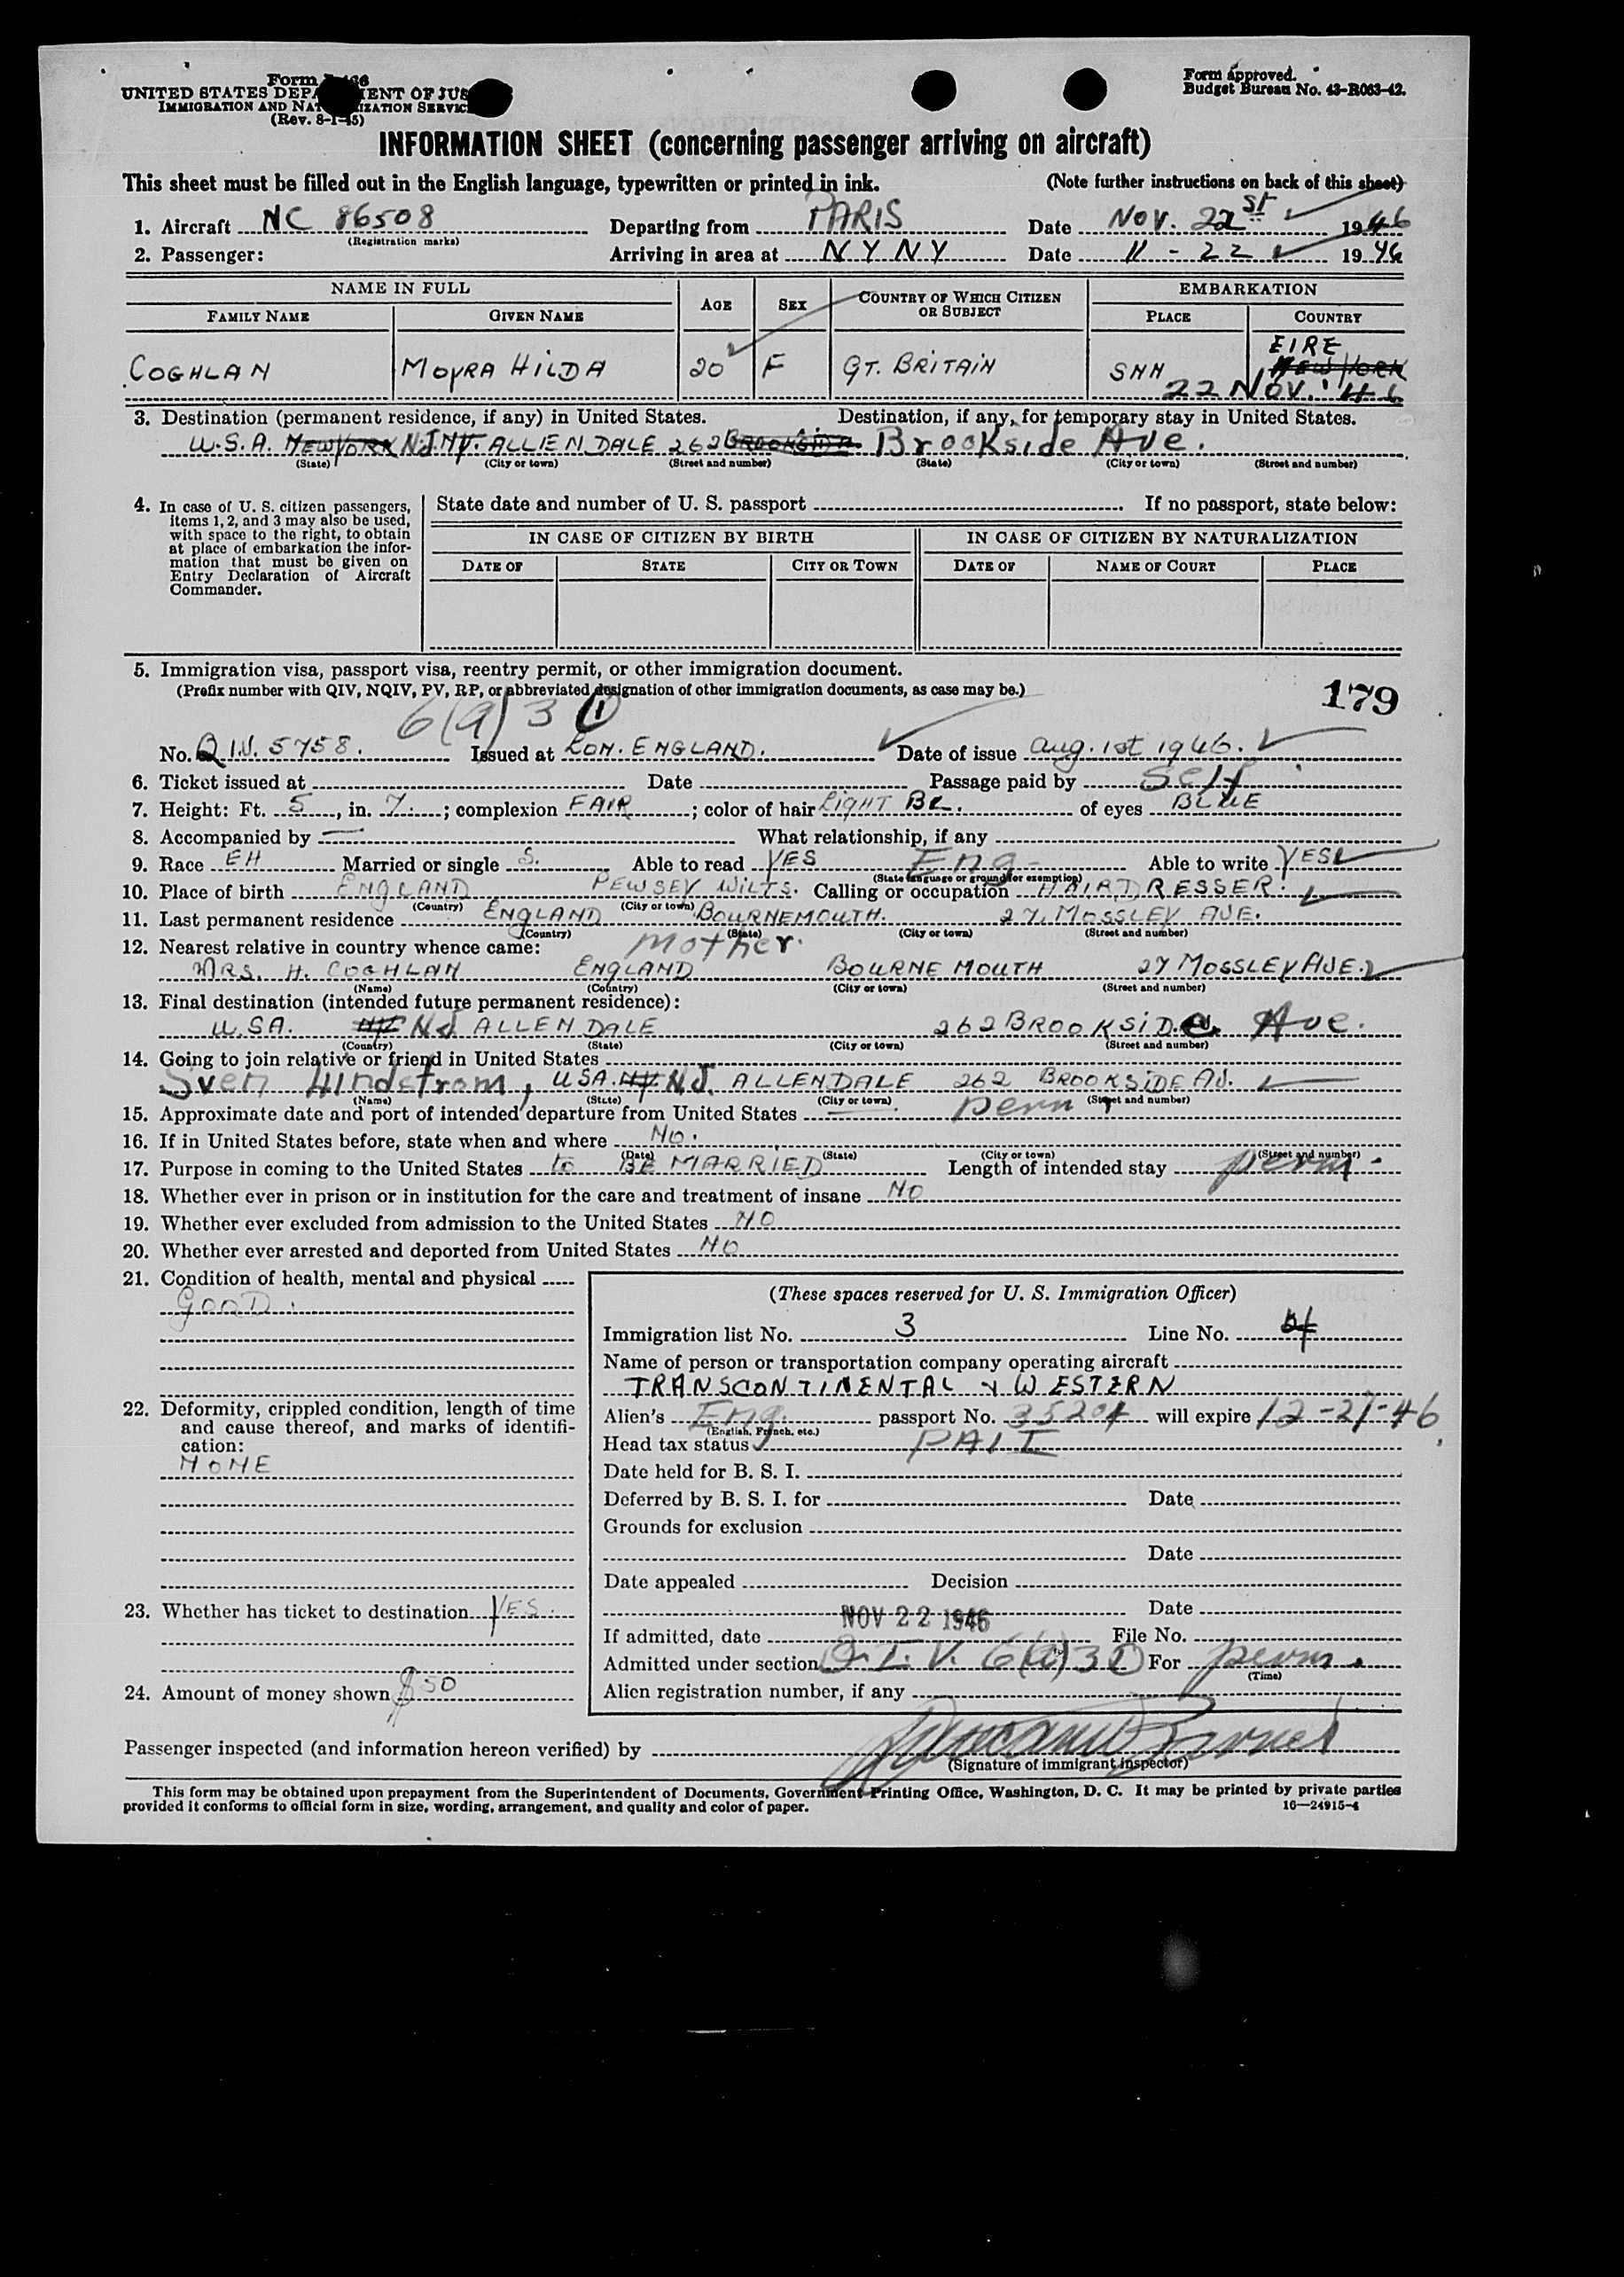 Form I-466
UNITED STATES DEPARTMENT OF JUSTICE
IMMIGRATION AND NATURALIZATION SERVICE
(Rev. 8-1-45)
Form approved.
Budget Bureau No. 43-R063-42.
INFORMATION SHEET (concerning passenger arriving on aircraft)
This sheet must be filled out in the English language, typewritten or printed in ink. (Note further instructions on back of this sheet)
1. Aircraft NC 86508 Departing from PARIS Date NOV. 22 st 1946
(Registration marks)
2. Passenger: Arriving in area at N Y N Y Date 11 - 22 1946
NAME IN FULL AGE SEX COUNTRY OF WHICH CITIZEN OR SUBJECT EMBARKATION
FAMILY NAME GIVEN NAME PLACE COUNTRY
COGHLAN MOYRA HILDA 20 F GT. BRITAIN SNN EIRE NEW YORK
22 NOV. '46
3. Destination (permanent residence, if any) in United States. Destination, if any, for temporary stay in United States.
U.S.A. NEW YORK NJ NY. ALLIEN DALE 262 BROOKSIDE Brookside Ave.
(State) (City or town) (Street and number) (State) (City or town) (Street and number)
4. In case of U. S. citizen passengers, items 1, 2, and 3 may also be used, with space to the right, to obtain at place of embarkation the information that must be given on Entry Declaration of Aircraft Commander.
State date and number of U. S. passport If no passport, state below:
IN CASE OF CITIZEN BY BIRTH IN CASE OF CITIZEN BY NATURALIZATION
DATE OF STATE CITY OR TOWN DATE OF NAME OF COURT PLACE
5. Immigration visa, passport visa, reentry permit, or other immigration document.
(Prefix number with QIV, NQIV, PV, RP, or abbreviated designation of other immigration documents, as case may be.)
179
6(a)3 (1)
No. Q.I.V. 5758. Issued at LON. ENGLAND. Date of issue Aug. 1st 1946.
6. Ticket issued at Date Passage paid by Self
7. Height: Ft. 5, in. 7.; complexion FAIR; color of hair LIGHT BR. of eyes BLUE
8. Accompanied by — What relationship, if any
9. Race EH Married or single S. Able to read YES Eng- Able to write YES
(State language or ground for exemption)
10. Place of birth ENGLAND PEWSEY WILTS. Calling or occupation HAIRDRESSER.
(Country) (City or town)
11. Last permanent residence ENGLAND BOURNEMOUTH. 27. MOSSLEY AVE.
(Country) (State) (City or town) (Street and number)
12. Nearest relative in country whence came: Mother.
MRS. H. COGHLAN ENGLAND BOURNEMOUTH 27 MOSSLEY AVE.
(Name) (Country) (City or town) (Street and number)
13. Final destination (intended future permanent residence):
U.SA. NY NJ ALLEN DALE 262 BROOKSIDE Ave.
(Country) (State) (City or town) (Street and number)
14. Going to join relative or friend in United States
Sven Lindstrom, USA. NY NJ. ALLENDALE 262 BROOKSIDE AV.
(Name) (State) (City or town) (Street and number)
15. Approximate date and port of intended departure from United States perm
16. If in United States before, state when and where NO.
(Date) (State) (City or town) (Street and number)
17. Purpose in coming to the United States to BE MARRIED Length of intended stay perm.
18. Whether ever in prison or in institution for the care and treatment of insane NO
19. Whether ever excluded from admission to the United States NO
20. Whether ever arrested and deported from United States NO
21. Condition of health, mental and physical
GOOD.
(These spaces reserved for U. S. Immigration Officer)
Immigration list No. 3 Line No. 4
Name of person or transportation company operating aircraft
TRANSCONTINENTAL & WESTERN
22. Deformity, crippled condition, length of time and cause thereof, and marks of identification:
NONE
Alien's Eng. passport No. 35204 will expire 12-27-46
(English, French, etc.)
Head tax status PAID
Date held for B. S. I.
Deferred by B. S. I. for Date
Grounds for exclusion
Date
Date appealed Decision
23. Whether has ticket to destination YES.
Date
NOV 22 1946
If admitted, date File No.
Admitted under section Q.I.V. 6(a)3(1) For perm.
(Time)
24. Amount of money shown $50
Alien registration number, if any
Passenger inspected (and information hereon verified) by
(Signature of immigrant inspector)
This form may be obtained upon prepayment from the Superintendent of Documents, Government Printing Office, Washington, D. C. It may be printed by private parties
provided it conforms to official form in size, wording, arrangement, and quality and color of paper. 16—24915-4